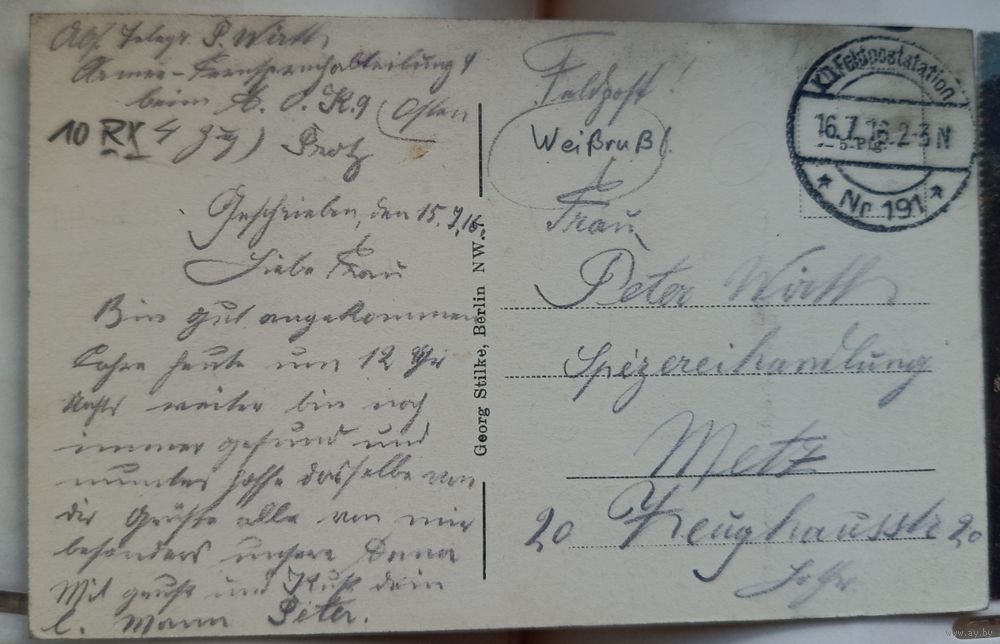 Abs. Telegr. P. Wirth
Armee-Fernsprechabteilung 4
beim A. O. K. 9 (Osten
10 RX 4 Zug)
Geschrieben, den 15.7.16.
Liebe Frau
Bin gut angekommen
fahre heute um 12 Uhr
Nachts weiter bin noch
immer gesund und
munter hoffe dasselbe von
dir Grüße alle von mir
besonders unsere
Mit Gruß und Kuß dein
l. Mann Peter.
Georg Stilke, Berlin NW.7.
Feldpost!
Weißruß!
Frau
Peter Wirth
Spezereihandlung
Metz
20 Zeughausstr 20
K.D. Feldpoststation
16.7.16. 2-3 N
* Nr 191 *
www.ay.by